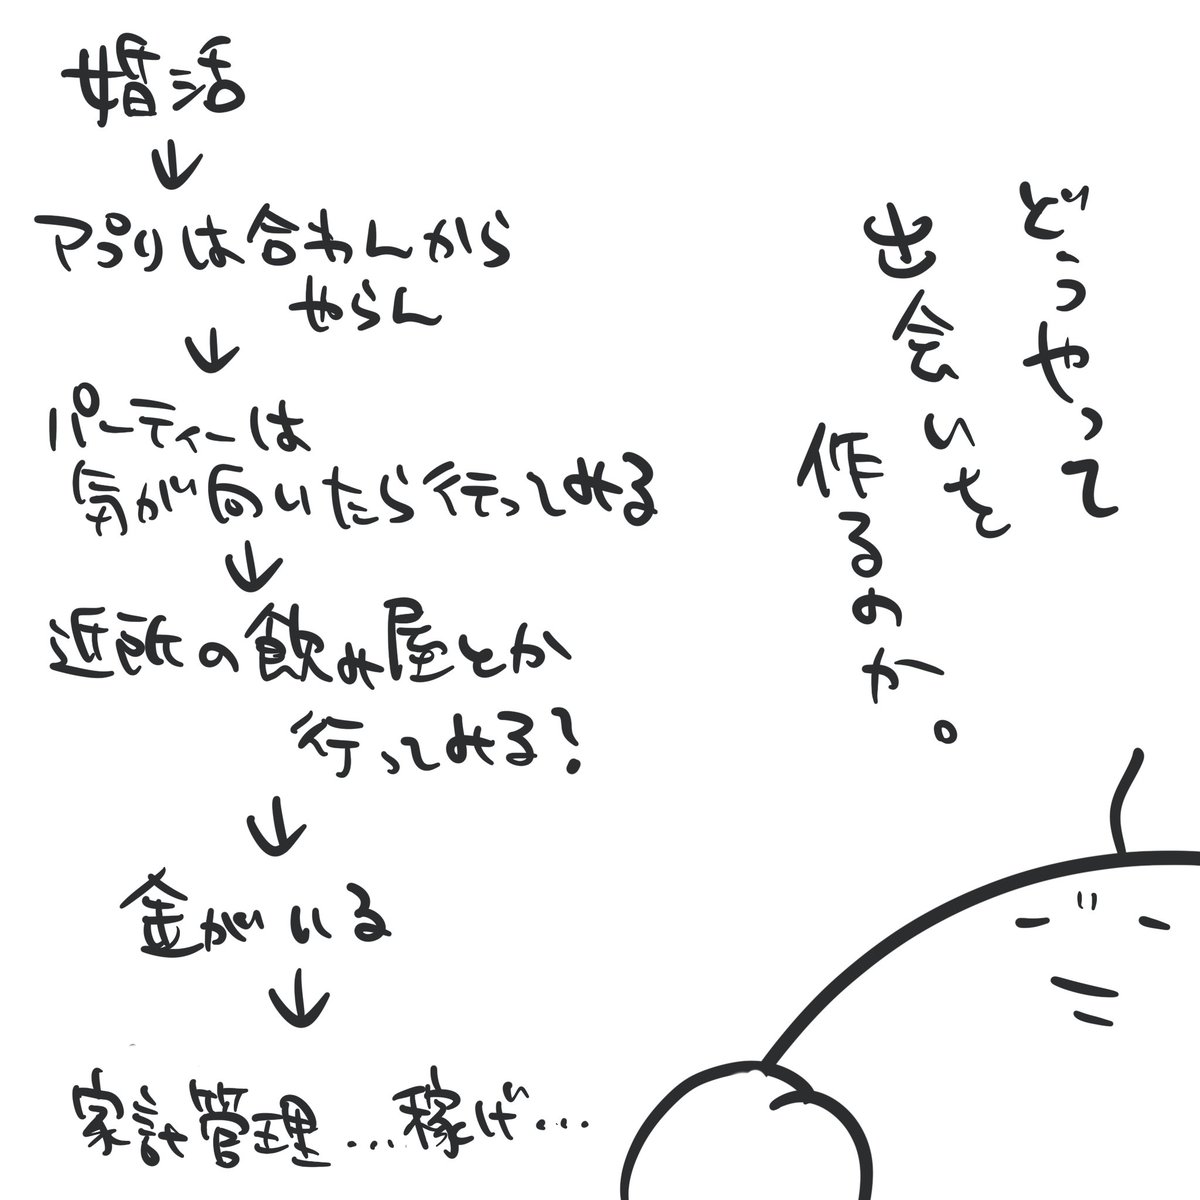 どうやって
出会いを
作るのか。
婚活
↓
アプリは合わんから
やらん
↓
パーティーは
気が向いたら行ってみる
↓
近所の飲み屋とか
行ってみる?
↓
金がいる
↓
家計管理…稼げ…